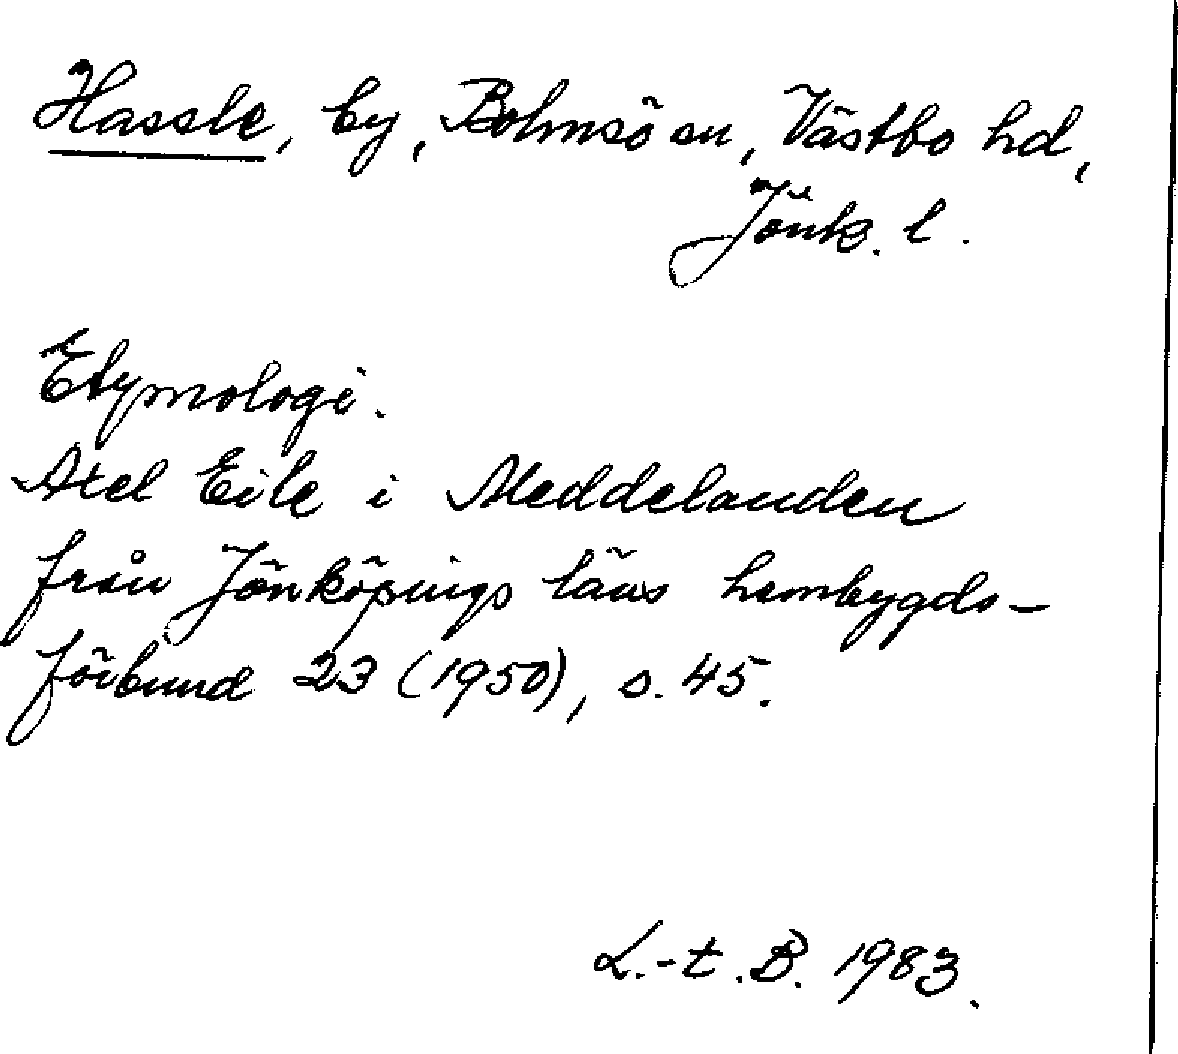 Hassle, by, Bolmsö sn, Västbo hd,
Jönk. l.
Etymologi.
Axel Eile i Meddelanden
från Jönköpings läns hembygds-
förbund 23 (1950), s. 45.
L.-t. B. 1983.